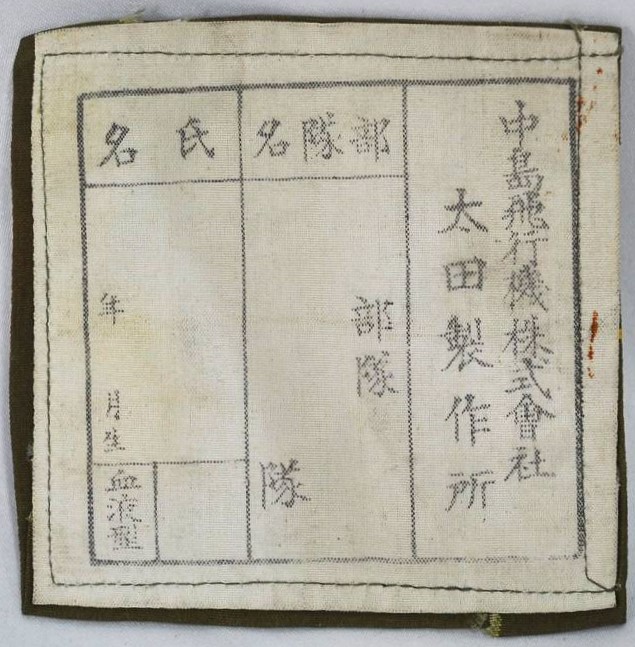 中島飛行機株式會社
太田製作所
部隊名
部隊
隊
氏名
年月生
血液型